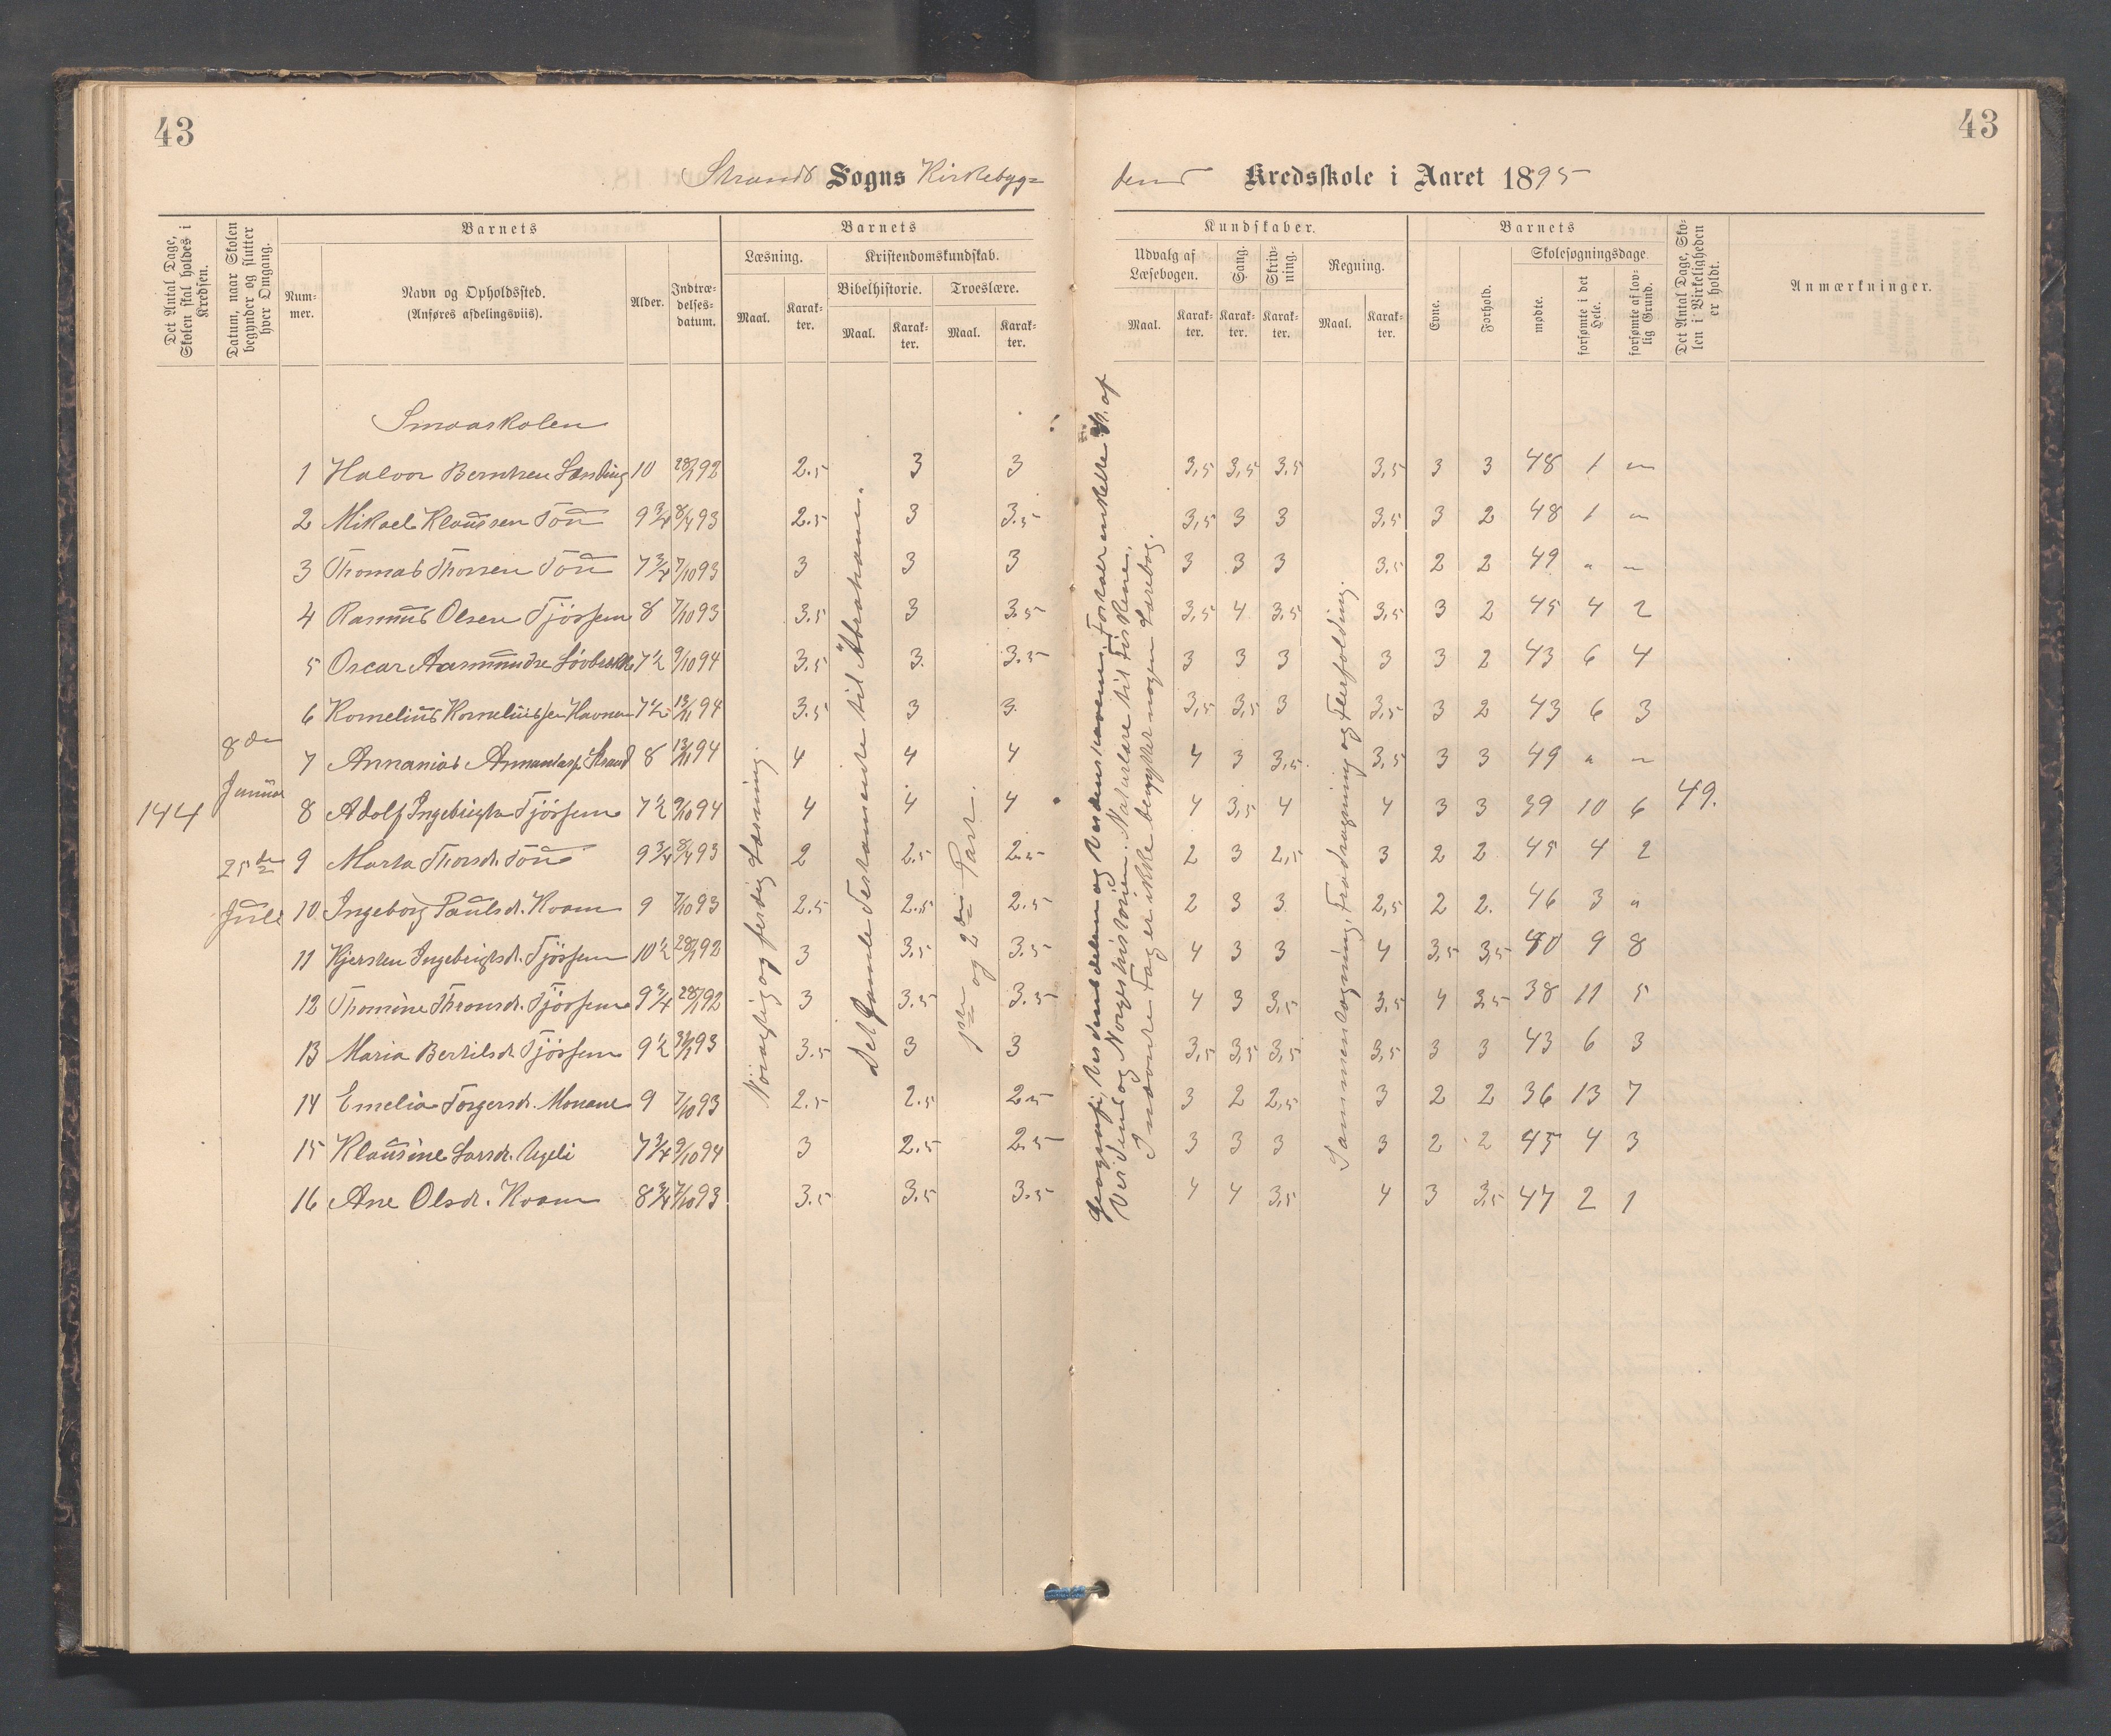 43
43
Strands Sogns Kirkebyg=
dens Kredsskole i Aaret 1895
Det Antal Dage, Skolen skal holdes i Kredsen.
Datum, naar Skolen begynder og slutter hver Omgang.
Barnets
Num-mer.
Navn og Opholdssted.
(Anføres afdelingsviis).
Alder.
Indtræ-delses-datum.
Barnets
Læsning.
Maal.
Karak-ter.
Kristendomskundskab.
Bibelhistorie.
Maal.
Karak-ter.
Troeslære.
Maal.
Karak-ter.
Kundskaber.
Udvalg af Læsebogen.
Maal.
Karak-ter.
Sang.
Karak-ter.
Skriv-ning.
Karak-ter.
Regning.
Maal.
Karak-ter.
Barnets
Evne.
Forhold.
Skolesøgningsdage.
mødte.
forsømte i det Hele.
forsømte af lov-lig Grund.
Det Antal Dage, Sko-len i Virkeligheden er holdt.
Anmærkninger.
Smaaskolen
1 Halvor Berntsen 10 28/1 92 2.5 3 3 3,5 3,5 3.5 3,5 3 3 48 1 "
2 Mikael Klaussen Tou 9 3/4 8/4 93 2.5 3 3.5 3,5 3 3 3,5 3 2 48 1 "
3 Thomas Thorsen Tou 7 3/4 7/10 93 3 3 3 3 3 3 3.5 2 2 49 " "
4 Rasmus Olsen Tjøssem 8 7/10 93 3.5 3 3.5 3,5 4 3.5 3,5 3 2 45 4 2
5 Oscar Aasmundse 7 1/2 9/10 94 3.5 3. 3.5 3 3 3 3 3 2 43 6 4
6 Kornelius Korneliussen Havnen 7 1/2 13/11 94 3.5 3 3. 3,5 3,5 3 3,5 3 2 43 6 3
7 Annanias Strand 8 13/11 94 4 4 4 4 3 3,5. 3,5 3 3 49 " "
8 Adolf Ingebrigts Tjøssem 7 1/2 9/10 94 4 4 4 4 3,5 4 4 3 3 39 10 6
9 Marta Thorsdt. Tou 9 3/4 8/4 93 2 2.5 2.5 2 3 2,5 3 2 2 45 4 2
10 Ingeborg Paulsdt. Kvam 9 7/10 93 2.5 2.5 2.5 2 3 3 2,5 2 2. 46 3 "
11 Kjersten Ingebrigtsdt. Tjøssem 10 1/2 28/1 92 3 3.5 3.5 4 3 3 4 3,5 3,5 40 9 8
12 Thomine Thronsdt. Tjøssem 9 3/4 28/1 92 3 3.5 3.5 4 3 3,5 3,5 4 3.5 38 11 5
13 Maria Bertilsdt Tjøssem 9 1/2 93 3.5 3 3 3,5 3,5 3,5 3,5 3 3 43 6 3
14 Emelia Torgersdt. Monane 9 7/10 93 2.5 2.5 2.5 3 2 2,5 3 2 2 36 13 7
15 Klausine Larsdt. Ugeli 7 3/4 9/10 94 3 2.5 2.5 3 3 3 3 2 2 45 4 3
16 Ane Olsdt. Kvam 8 3/4 7/10 93 3.5 3.5 3.5 4 4 3,5 4 3 3,5 47 2 1
144
8de
Januar
25de
Juli
49.
Nøiagtig og ferdig Læsning.
Det gamle Testamente til Abraham.
1ste og 2den Part.
Geografi, Verdensdelene og Verdenshavene; Fortælle enkelte St. af
Verdens og Norgeshistorien. Naturlære til Fiskene.
I nævnte Fag er ikke benyttet nogen Lærebog.
Sammenlægning, Fradragning og Flerfolding.